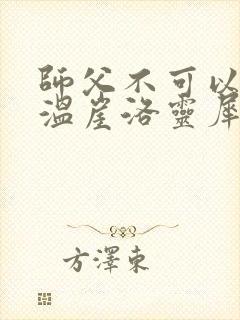 師父不可以
溫崖洛靈犀
方澤東